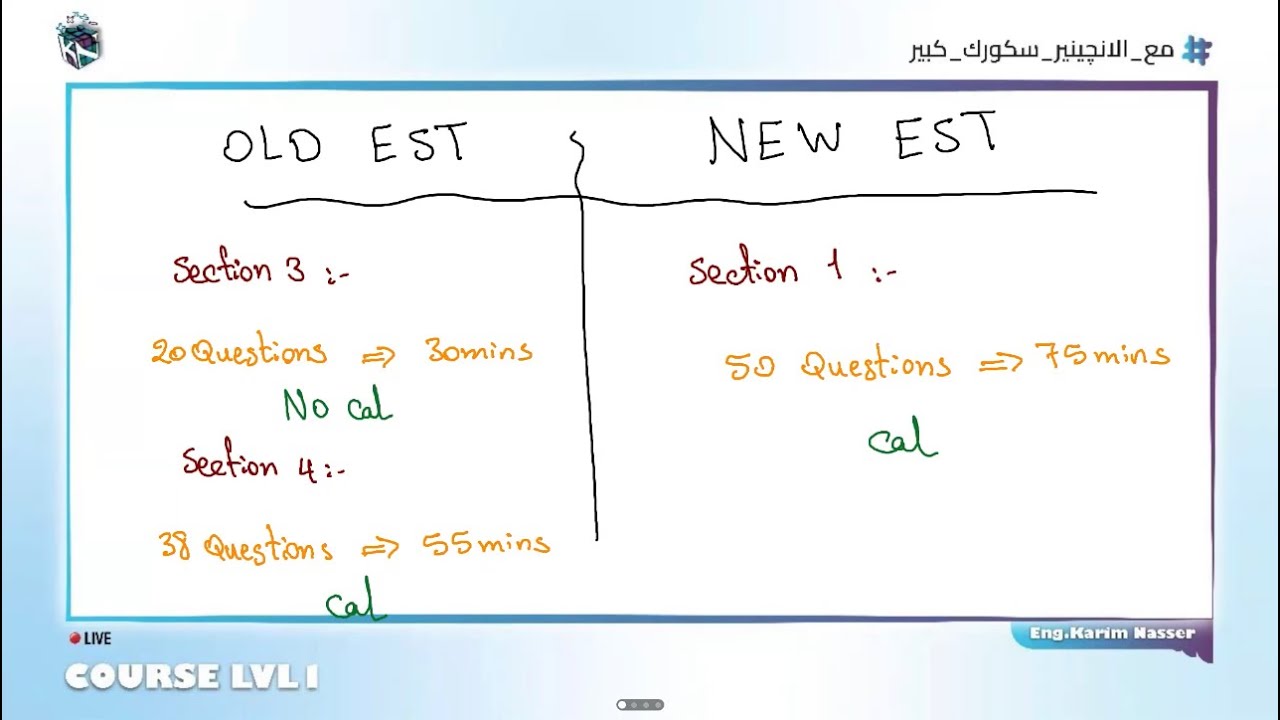 #مع_الانچينير_سكورك_كبير
KN
OLD EST
NEW EST
Section 3 :-
20 Questions => 30mins
No cal
Section 4 :-
38 Questions => 55mins
cal
Section 1 :-
50 Questions => 75mins
cal
LIVE
Eng.Karim Nasser
COURSE LVL 1